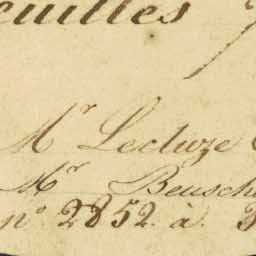 euilles
Mr Lecluze
Mr Beusch
no 2852. à.